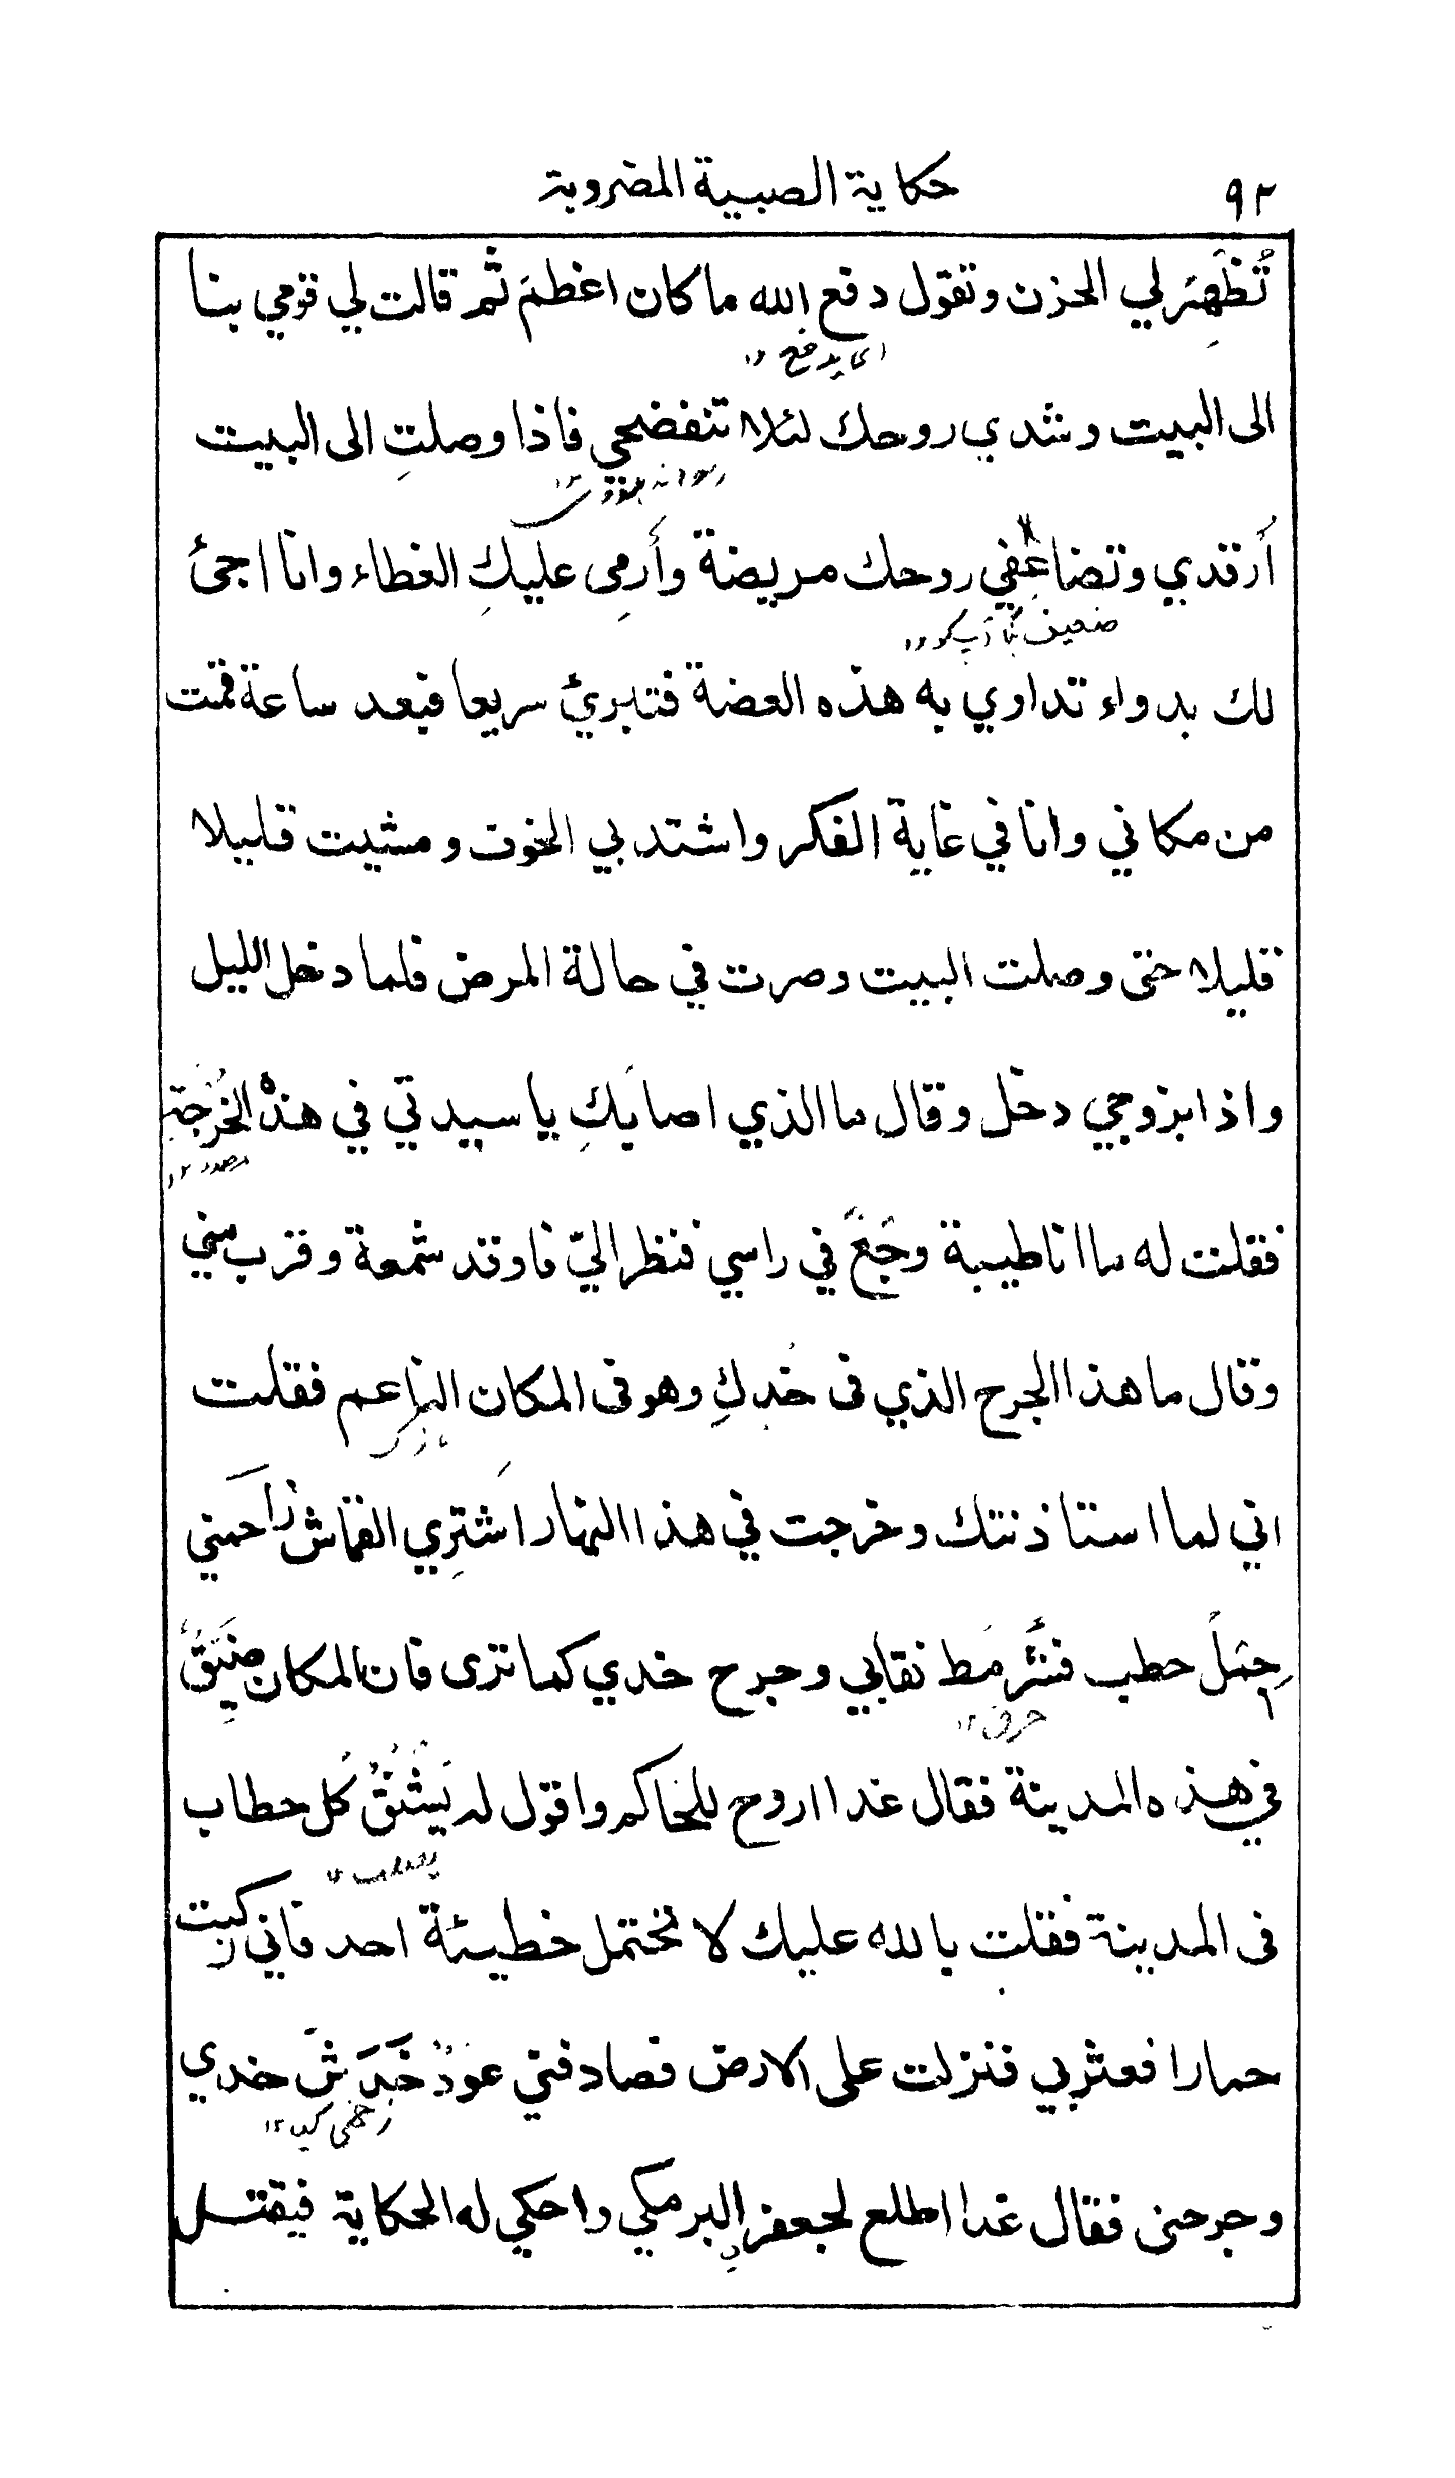 ٩٢ حكاية الصبية المضروبة
تُظهِرُ لي الحزن وتقول دفع الله ما كان اعظم ثم قالت لي قومي بنا
اى يدفع ١٢
الى البيت وشدي روحك لئلا تنفضحي فاذا وصلتِ الى البيت
أرقدي وتضاعفي روحك مريضة وأرمِى عليكِ الغطاء وانا اجئ
ضعيف
لك بدواء تداوي به هذه العضة فتبرئ سريعا فبعد ساعة قمت
من مكاني وانا في غاية الفكر واشتد بي الخوف ومشيت قليلا
قليلا حتى وصلت البيت وصرت في حالة المرض فلما دخل الليل
واذا بزوجي دخل وقال ما الذي اصابكِ يا سيدتي في هذه الخُرجة
مصدر ١٢
فقلت له ما انا طيبة وجَعٌ في راسي فنظر اليّ فاوقد شمعة وقرب مني
وقال ما هذا الجرح الذي فى خدكِ وهو فى المكان الناعم فقلت
نازك
اني لما استاذنتك وخرجت في هذا النهار اشتري القماش زاحمني
جمَلَ حطب فشَرمَط نقابي وجرح خدي كما ترى فان المكان ضَيّقٌ
خرق ١٢
في هذه المدينة فقال غدا اروح للحاكم واقول له يَشْنُقُ كُل حطاب
يصلب ١٢
فى المدينة فقلت بالله عليك لا تحتمل خطيئة احد فاني ركبت
حمارا فعثر بي فنزلت على الارض فصادفني عودٌ خَدَشَ خدي
زخمى كيا ١٢
وجرحنى فقال غدا اطلع لجعفر البرمكي واحكي له الحكاية فيقتل